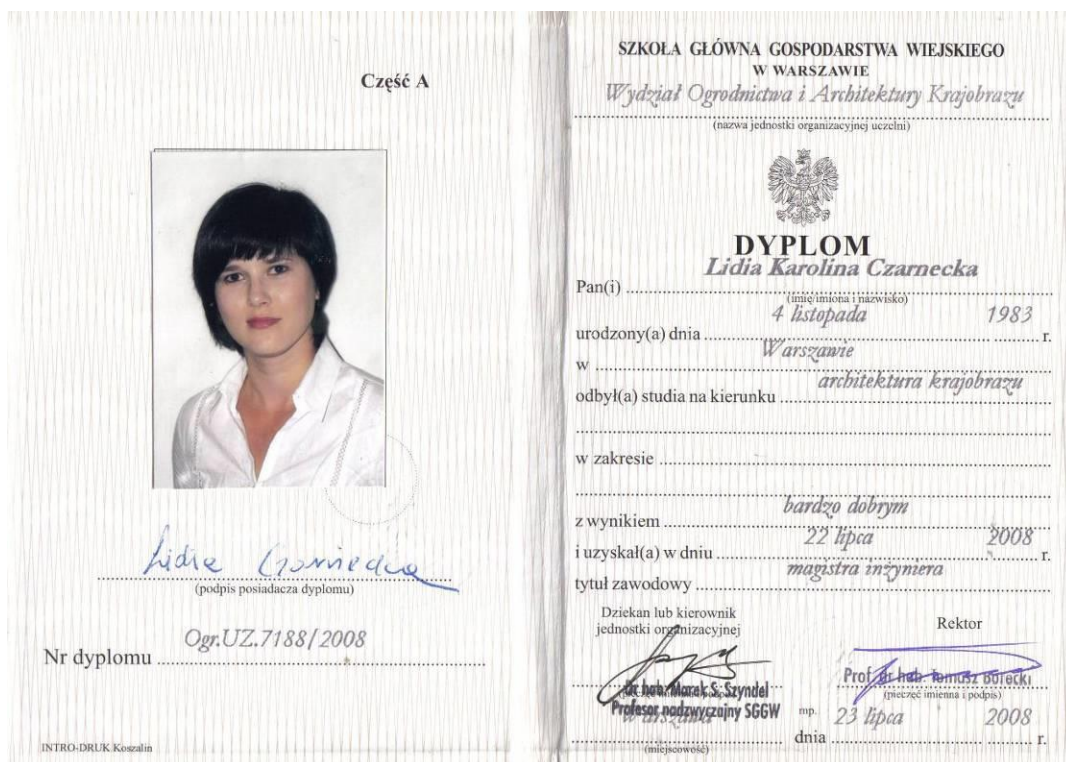 Część A
Lidia Czarnecka
(podpis posiadacza dyplomu)
Nr dyplomu Ogr.UZ.7188/2008
INTRO-DRUK Koszalin
SZKOŁA GŁÓWNA GOSPODARSTWA WIEJSKIEGO
W WARSZAWIE
Wydział Ogrodnictwa i Architektury Krajobrazu
(nazwa jednostki organizacyjnej uczelni)
DYPLOM
Pan(i) Lidia Karolina Czarnecka
(imię/imiona i nazwisko)
urodzony(a) dnia 4 listopada 1983 r.
w Warszawie
odbył(a) studia na kierunku architektura krajobrazu
w zakresie
z wynikiem bardzo dobrym
i uzyskał(a) w dniu 22 lipca 2008 r.
tytuł zawodowy magistra inżyniera
Dziekan lub kierownik
jednostki organizacyjnej
dr hab. Marek S. Szyndel
Profesor nadzwyczajny SGGW
Warszawa
(miejscowość)
Rektor
Prof. dr hab. Tomasz Borecki
(pieczęć imienna i podpis)
mp. dnia 23 lipca 2008 r.